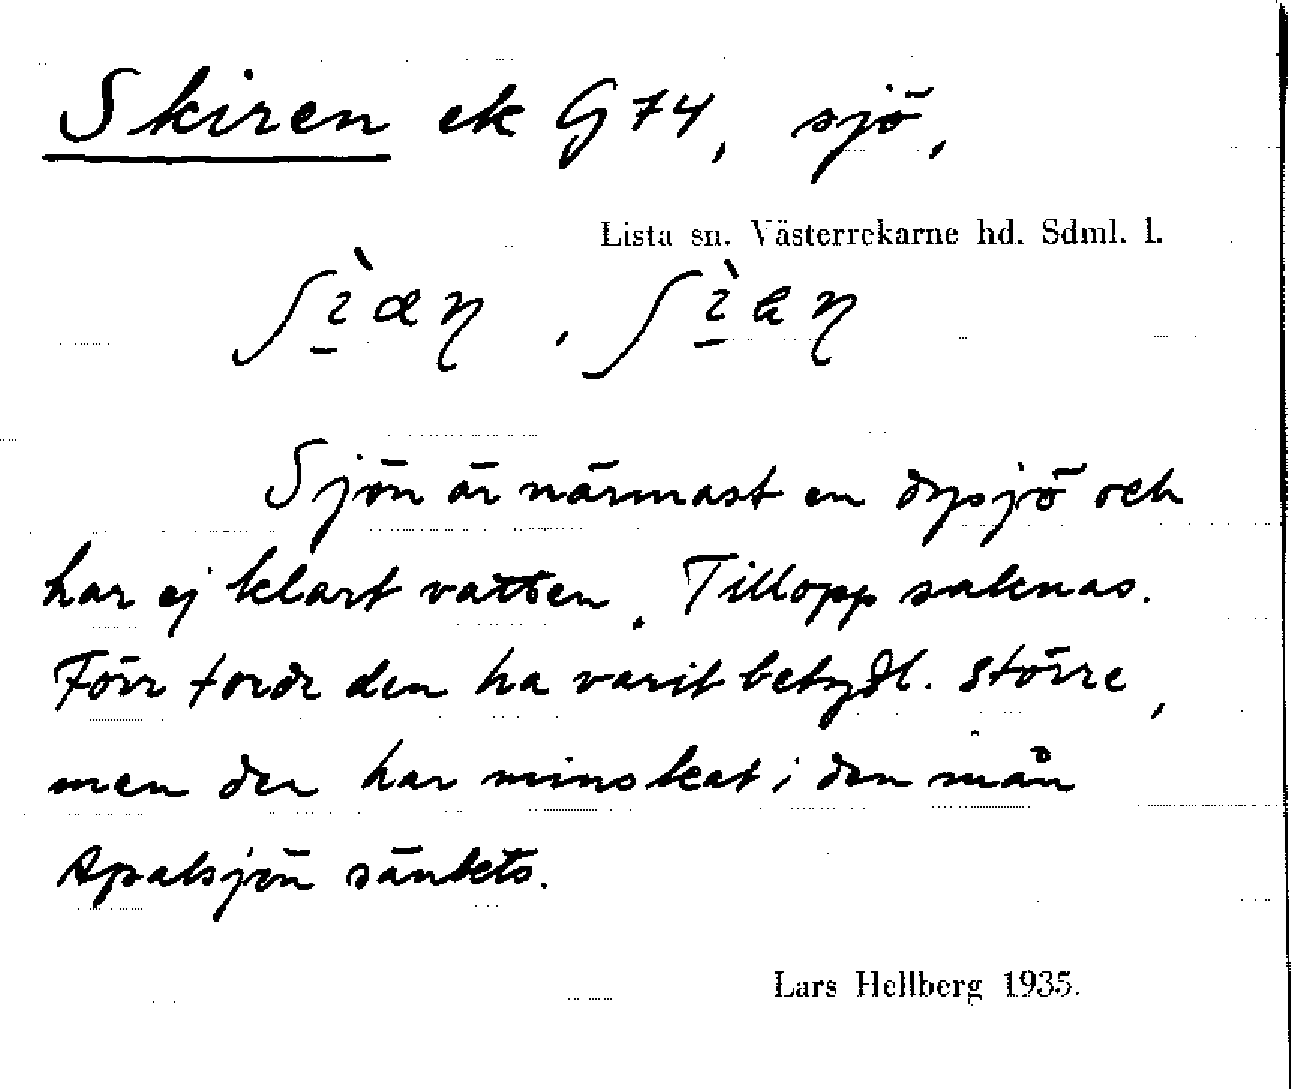 Skiren ek G 74, sjö,
Lista sn. Västerrekarne hd. Sdml. l.
Sjön är närmast en dysjö och
har ej klart vatten. Tillopp saknas.
Förr torde den ha varit betydl. större,
men den har minskat i den mån
Apalsjön sänkts.
Lars Hellberg 1935.